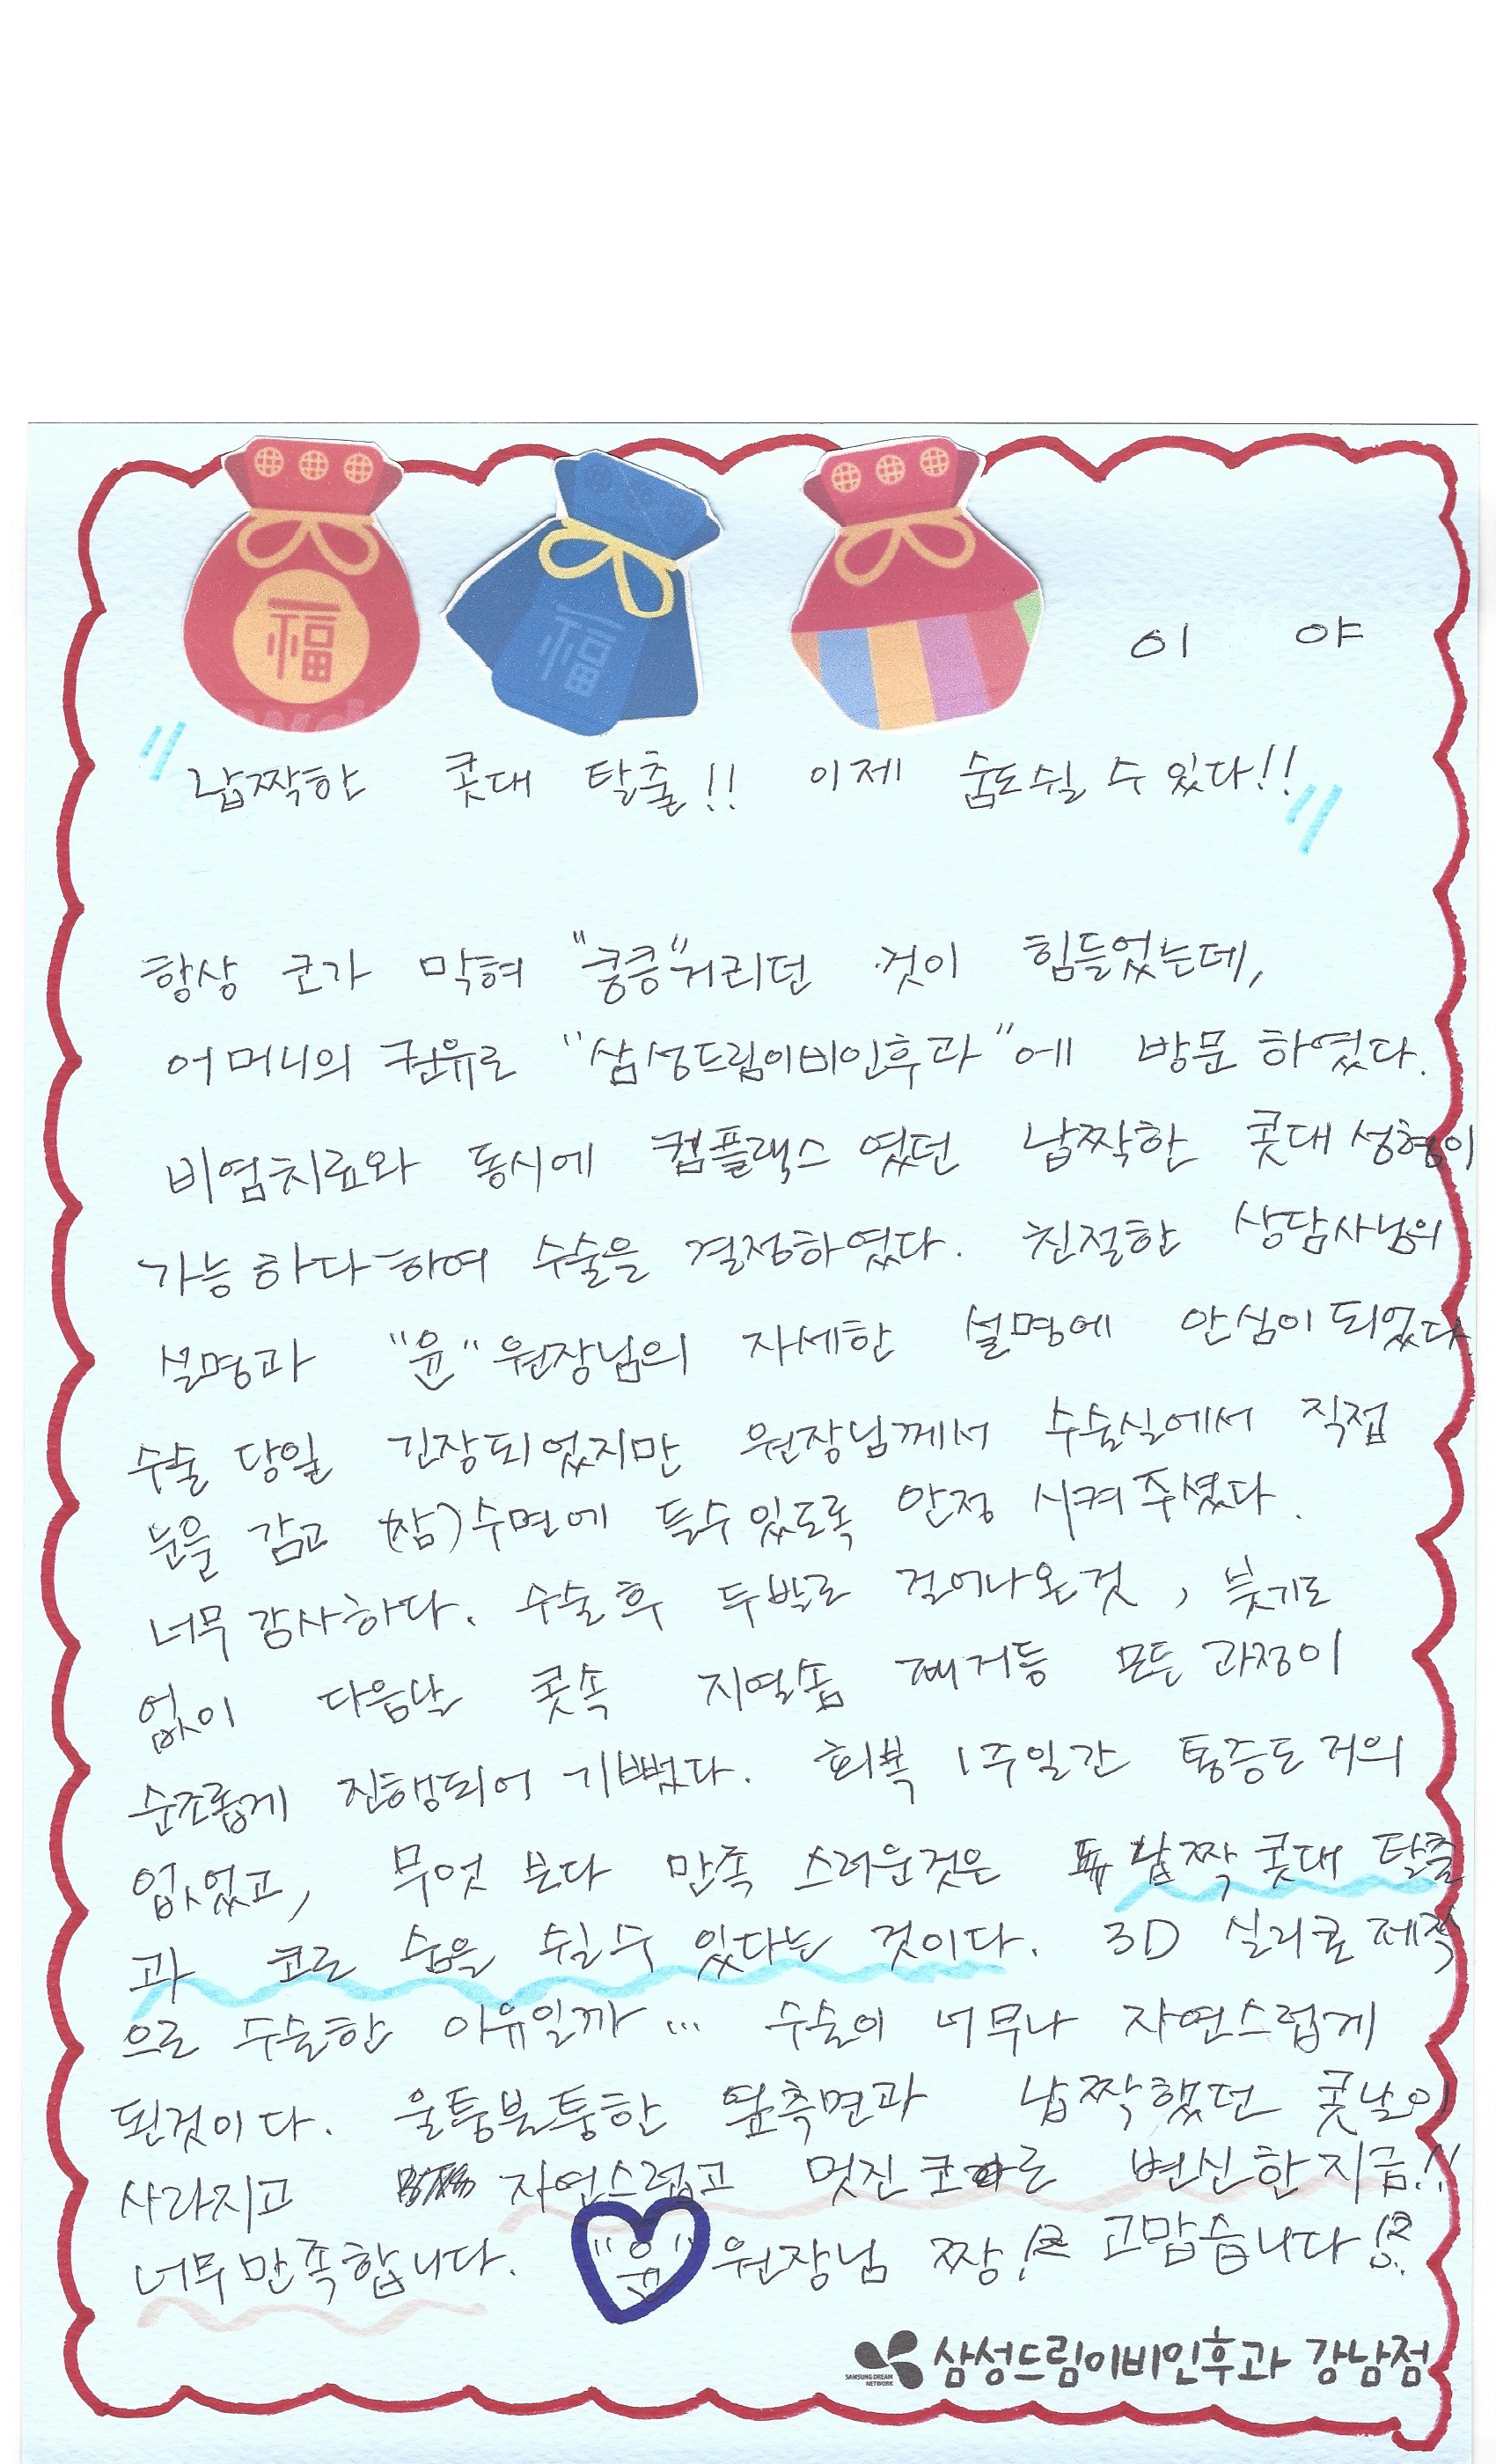 福
福
이 야
" 납짝한 콧대 탈출!! 이제 숨도쉴 수 있다!! "
항상 코가 막혀 "킁킁"거리던 것이 힘들었는데,
어머니의 권유로 "삼성드림이비인후과"에 방문 하였다.
비염치료와 동시에 컴플랙스 였던 납짝한 콧대 성형이
가능하다하여 수술을 결정하였다. 친절한 상담사님의
설명과 "윤" 원장님의 자세한 설명에 안심이 되었다.
수술 당일 긴장되었지만 원장님께서 수술실에서 직접
눈을 감고 (잠)수면에 들수있도록 안정 시켜주셨다.
너무 감사하다. 수술후 두발로 걸어나온것, 붓기도
없이 다음날 콧속 지열솜 제거등 모든 과정이
순조롭게 진행되어 기뻤다. 회복 1주일간 통증도 거의
없었고, 무엇 보다 만족 스러운것은 납짝 콧대 탈출
과 코로 숨을 쉴수 있다는 것이다. 3D 실리콘 제작
으로 수술한 이유일까... 수술이 너무나 자연스럽게
된것이다. 울퉁불퉁한 옆측면과 납짝했던 콧날이
사라지고 자연스럽고 멋진 코로 변신한지금!!
너무만족합니다. "윤" 원장님 짱! 고맙습니다!
SAMSUNG DREAM NETWORK
삼성드림이비인후과 강남점